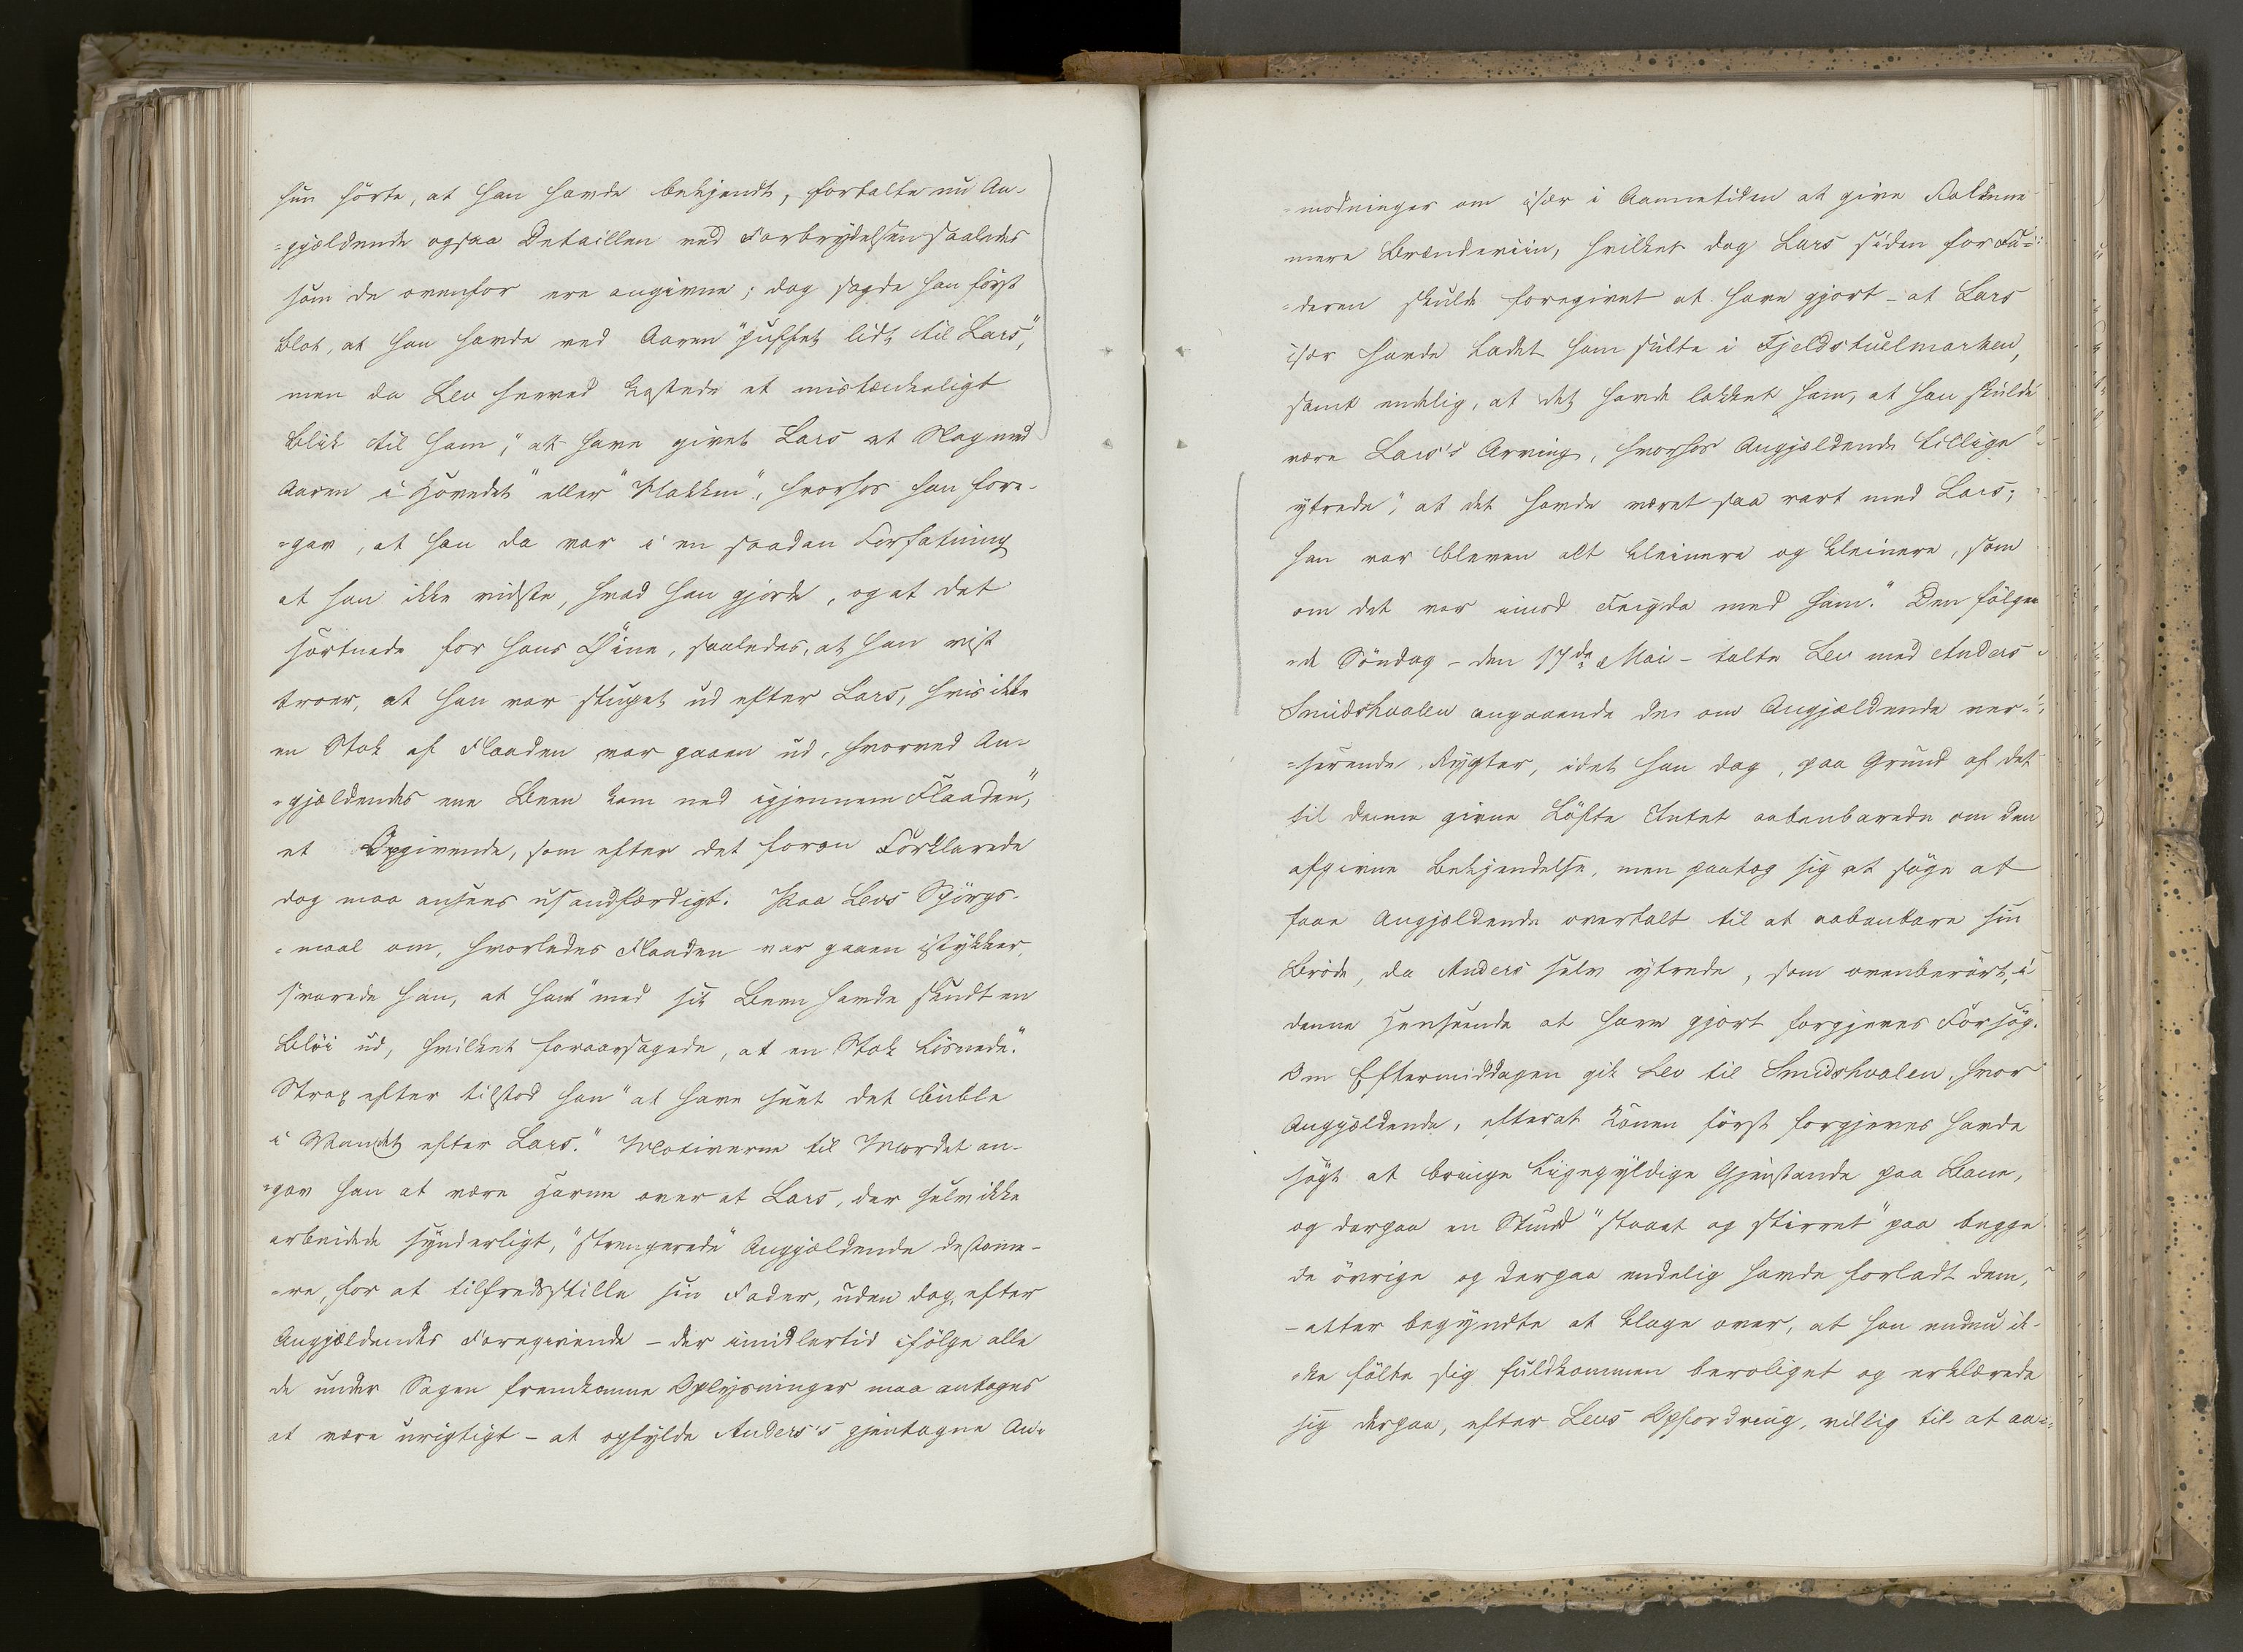 hun hørte, at han havde bekjendt, fortalte nu An-
=gjældende ogsaa Detaillen ved Forbrydelsen saaledes
som de ovenfor ere angivne; dog sagde han først
blot, at han havde ved Aaren "puffet lidt til Lars",
men da Lev herved kastede et mistænkeligt
Blik til ham, "at have givet Lars et Slag med
Aaren i Hovedet" eller "Nakken", hvorhos han fore-
=gav, at han da var i en saadan Forfatning
at han ikke vidste, hvad han gjorde, og at det
sortnede for hans Øine, saaledes, at han vist
troer, at han var stupet ud efter Lars, hvis ikke
en Stok af Flaaden var gaaen ud, hvorved An-
=gjældendes ene Been kom ned igjennem Flaaden",
et Opgivende, som efter det foran Forklarede
dog maa ansees usandfærdigt. Paa Levs Spörgs-
=maal om, hvorledes Flaaden var gaaen istykker,
svarede han, at han "med sit Been havde skudt en
Bløi ud, hvilket foraarsagede, at en Stok løsnede".
Strax efter tilstod han "at have seet det buble
i Vandet efter Lars." Motiverne til Mordet an-
=gav han at være Harme over at Lars, der selv ikke
arbeidede synderligt, "strengerede" Angjældende destome-
=re, for at tilfredsstille sin Fader, uden dog, efter
Angjældendes Foregivende – der imidlertid ifølge alle
de under Sagen fremkomne Oplysninger maa antages
at være urigtigt – at opfylde Anders's gjentagne An-
=modninger om især i Aannetiden at give Folkene
mere Brændeviin, hvilket dog Lars siden for Fa-
=deren skulde foregivet at have gjort – at Lars
især havde ladet ham sulte i Fjeldstuelmarken,
samt endelig, at det havde lokket ham, at han skulde
være Lars's Arving, hvorhos Angjældende tillige
ytrede, "at det havde været saa rart med Lars;
han var bleven alt kleinere og kleinere, som
om det var imod Feigda med ham." Den følgen-
=de Søndag – den 17de Mai – talte Lev med Anders
Smidshvalen angaaende de om Angjældende ver-
=serende Rygter, idet han dog, paa Grund af det
til denne givne Løfte Intet aabenbarede om den
afgivne Bekjendelse, men paatog sig at søge at
faae Angjældende overtalt til at aabenbare sin
Brøde, da Anders selv ytrede, som ovenberørt, i
denne Henseende at have gjort forgjeves Forsøg.
Om Eftermiddagen gik Lev til Smidshvalen, hvor
Angjældende, efterat Konen først forgjeves havde
søgt at bringe ligegyldige Gjenstande paa Bane,
og derpaa en Stund "staaet og stirret" paa begge
de øvrige og derpaa endelig havde forladt dem,
– atter begyndte at klage over, at han endnu ik-
=ke følte sig fuldkommen beroliget og erklærede
sig derpaa, efter Levs Opfordring, villig til at aa-